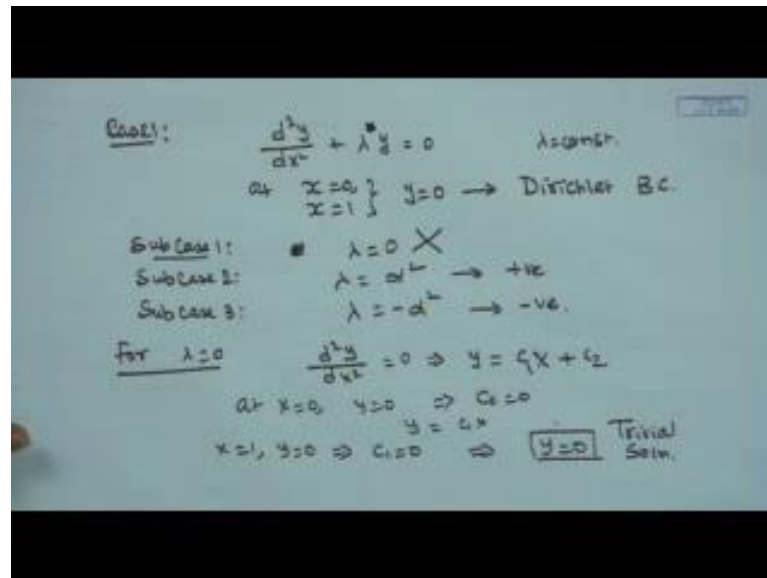 Case 1: d²y/dx² + λy = 0 λ=const.
at x=0, x=1 } y=0 → Dirichlet B.C.
Subcase 1: λ=0 X
Subcase 2: λ = α² → +ve
Subcase 3: λ = -α² → -ve.
For λ=0 d²y/dx² = 0 ⇒ y = C₁x + C₂
at x=0, y=0 ⇒ C₂=0
y = C₁x
x=1, y=0 ⇒ C₁=0 ⇒ y=0 Trivial Soln.